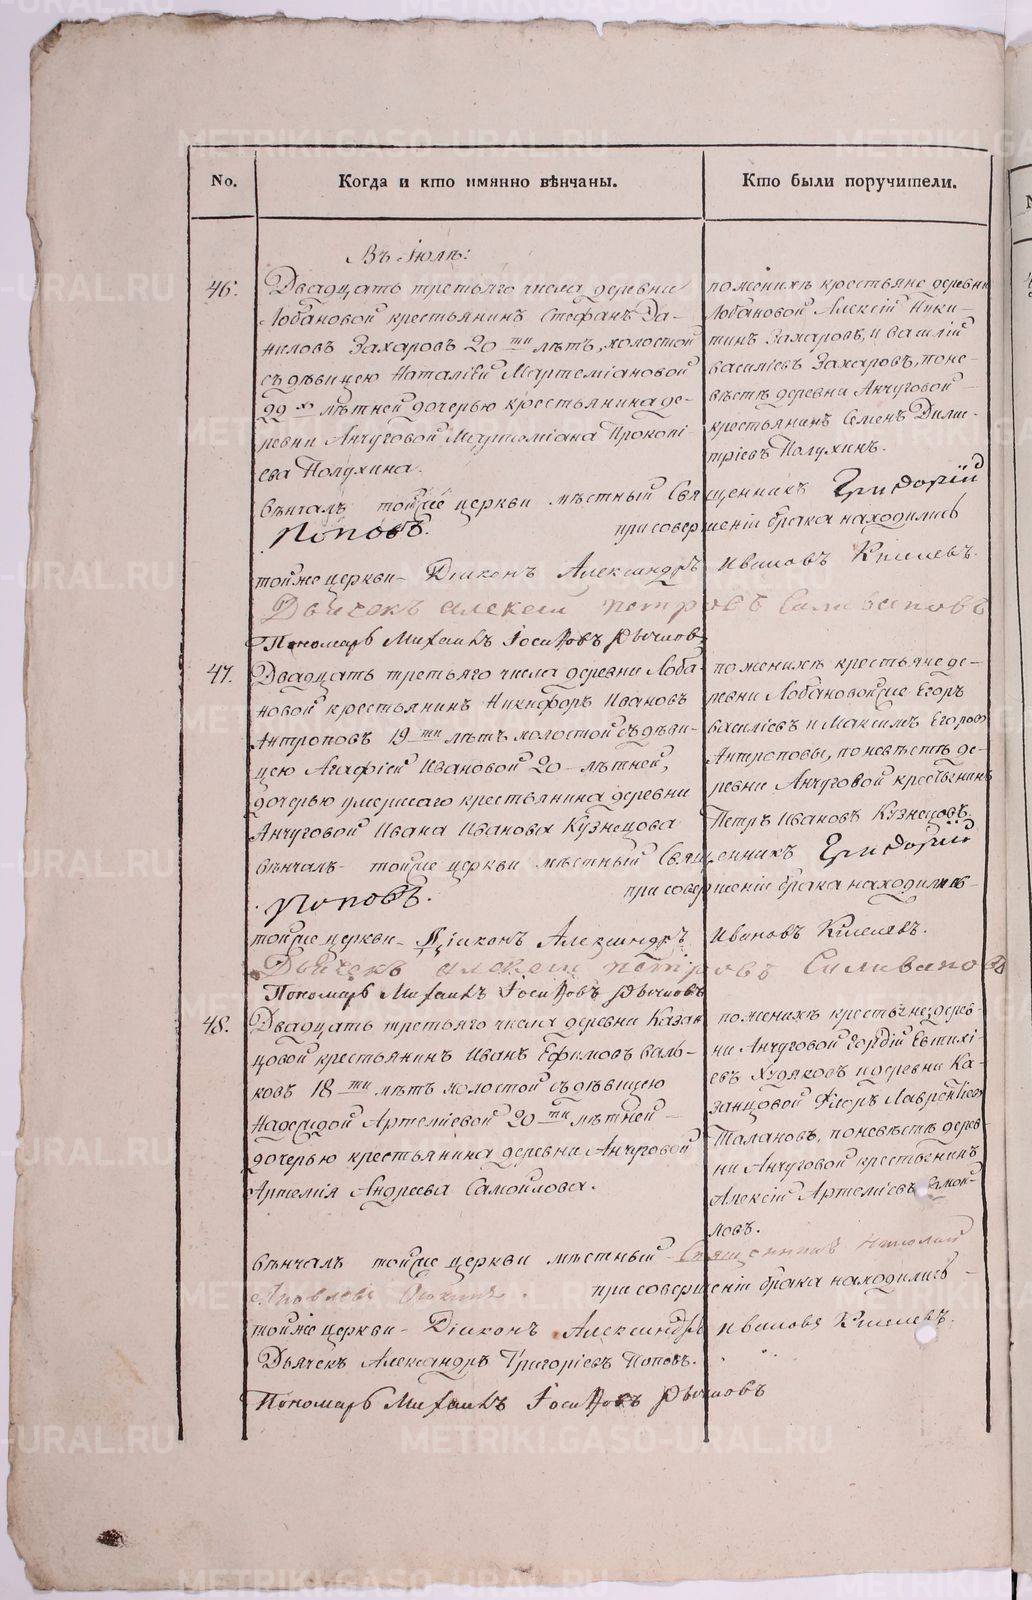 No.
Когда и кто имянно вѣнчаны.
Кто были поручители.
Въ Іюлѣ:
46.
Двадцать третьяго числа деревни
Лобановой крестьянинъ Стефанъ Да-
ниловъ Захаровъ 20 ти лѣтъ, холостой
съ дѣвицею Наталіей Мартеміановой
22 х лѣтней дочерью крестьянина де-
ревни Анчуговой Мартеміана Прокопі-
ева Полухина.
по женихѣ крестьяне деревни
Лобановой Алексій Ники-
тинъ Захаровъ, и Василій
Василіевъ Захаровъ, по не-
вѣстѣ деревни Анчуговой
крестьянинъ Семенъ Дими-
тріевъ Полухинъ.
вѣнчалъ тойже церкви мѣстный Священникъ Григорій
Поповъ. при совершеніи брака находились
тойже церкви Діаконъ Александръ Ивановъ Киселевъ.
Дьячекъ Алексей Петровъ Селивановъ
Пономарь Михаилъ Іосифовъ Рычковъ
47.
Двадцать третьяго числа деревни Лоба-
новой крестьянинъ Никифоръ Ивановъ
Антроповъ 19 ти лѣтъ холостой съ дѣви-
цею Агафіей Ивановой 20 лѣтней,
дочерью умершаго крестьянина деревни
Анчуговой Ивана Иванова Кузнецова
по женихѣ крестьяне де-
ревни Лобановой же Егоръ
Василіевъ и Максимъ Егоровъ
Антроповы, по невѣстѣ де-
ревни Анчуговой крестьянинъ
Петръ Ивановъ Кузнецовъ.
вѣнчалъ тойже церкви мѣстный Священникъ Григорій
Поповъ. при совершеніи брака находились
тойже церкви Діаконъ Александръ Ивановъ Киселевъ.
Дьячекъ Алексей Петровъ Силивановъ
Пономарь Михаилъ Іосифовъ Рычковъ
48.
Двадцать третьяго числа деревни Казан-
цовой крестьянинъ Иванъ Ефимовъ Валь-
ковъ 18 ти лѣтъ холостой съ дѣвицею
Надеждой Артеміевой 20 ти лѣтней
дочерью крестьянина деревни Анчуговой
Артемія Андреева Самойлова.
по женихѣ крестьяне дерев-
ни Анчуговой Гордій Евтихі-
евъ Худяковъ и деревни Ка-
занцовой Ѳедоръ Лаврентіевъ
Талановъ, по невѣстѣ дерев-
ни Анчуговой крестьянинъ
Алексій Артеміевъ Самой-
ловъ.
вѣнчалъ тойже церкви мѣстный Священникъ Николай
Яковлевъ при совершеніи брака находились
тойже церкви Діаконъ Александръ Ивановъ Киселевъ.
Дьячекъ Александръ Григоріевъ Поповъ.
Пономарь Михаилъ Іосифовъ Рычковъ